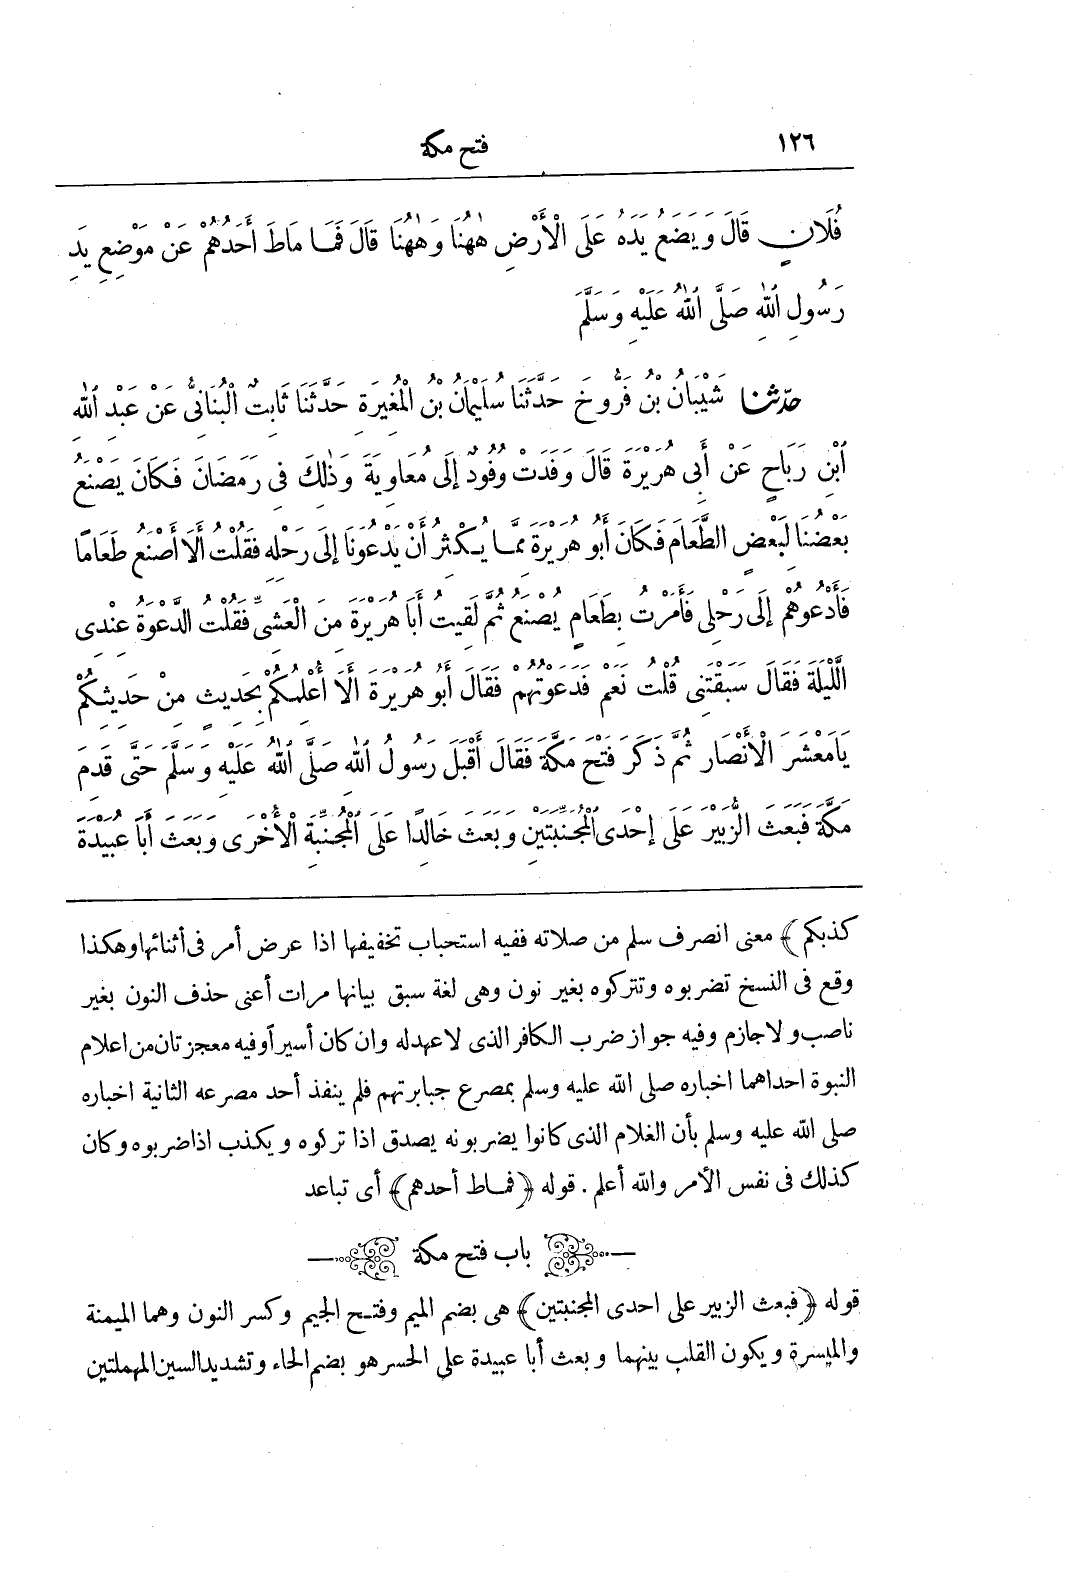 ١٢٦ فتح مكة
فُلَانٍ قَالَ وَيَضَعُ يَدَهُ عَلَى الْأَرْضِ هٰهُنَا وَهٰهُنَا قَالَ فَمَا مَاطَ أَحَدُهُمْ عَنْ مَوْضِعِ يَدِ
رَسُولِ اللهِ صَلَّى اللهُ عَلَيْهِ وَسَلَّمَ
حدّثنا شَيْبَانُ بْنُ فَرُّوخَ حَدَّثَنَا سُلَيْمَانُ بْنُ الْمُغِيرَةِ حَدَّثَنَا ثَابِتٌ الْبُنَانِىُّ عَنْ عَبْدِ اللهِ
ابْنِ رَبَاحٍ عَنْ أَبِى هُرَيْرَةَ قَالَ وَفَدَتْ وُفُودٌ إِلَى مُعَاوِيَةَ وَذٰلِكَ فِى رَمَضَانَ فَكَانَ يَصْنَعُ
بَعْضُنَا لِبَعْضٍ الطَّعَامَ فَكَانَ أَبُو هُرَيْرَةَ مِمَّا يُكْثِرُ أَنْ يَدْعُونَا إِلَى رَحْلِهِ فَقُلْتُ أَلَا أَصْنَعُ طَعَامًا
فَأَدْعُوَهُمْ إِلَى رَحْلِى فَأَمَرْتُ بِطَعَامٍ يُصْنَعُ ثُمَّ لَقِيتُ أَبَا هُرَيْرَةَ مِنَ الْعَشِىِّ فَقُلْتُ الدَّعْوَةُ عِنْدِى
اللَّيْلَةَ فَقَالَ سَبَقْتَنِى قُلْتُ نَعَمْ فَدَعَوْتُهُمْ فَقَالَ أَبُو هُرَيْرَةَ أَلَا أُعْلِمُكُمْ بِحَدِيثٍ مِنْ حَدِيثِكُمْ
يَامَعْشَرَ الْأَنْصَارِ ثُمَّ ذَكَرَ فَتْحَ مَكَّةَ فَقَالَ أَقْبَلَ رَسُولُ اللهِ صَلَّى اللهُ عَلَيْهِ وَسَلَّمَ حَتَّى قَدِمَ
مَكَّةَ فَبَعَثَ الزُّبَيْرَ عَلَى إِحْدَى الْمُجَنِّبَتَيْنِ وَبَعَثَ خَالِدًا عَلَى الْمُجَنِّبَةِ الْأُخْرَى وَبَعَثَ أَبَا عُبَيْدَةَ
كذبكم﴾ معنى انصرف سلم من صلاته ففيه استحباب تخفيفها اذا عرض أمر فى أثنائها وهكذا
وقع فى النسخ تضربوه وتتركوه بغير نون وهى لغة سبق بيانها مرات أعنى حذف النون بغير
ناصب ولا جازم وفيه جواز ضرب الكافر الذى لا عهد له وان كان أسيراً وفيه معجزتان من اعلام
النبوة احداهما اخباره صلى الله عليه وسلم بمصرع جبابرتهم فلم ينفذ أحد مصرعه الثانية اخباره
صلى الله عليه وسلم بأن الغلام الذى كانوا يضربونه يصدق اذا تركوه ويكذب اذا ضربوه وكان
كذلك فى نفس الأمر والله أعلم . قوله ﴿فماط أحدهم﴾ أى تباعد
باب فتح مكة
قوله ﴿فبعث الزبير على احدى المجنبتين﴾ هى بضم الميم وفتح الجيم وكسر النون وهما الميمنة
والميسرة ويكون القلب بينهما وبعث أبا عبيدة على الحسر هو بضم الحاء وتشديد السين المهملتين